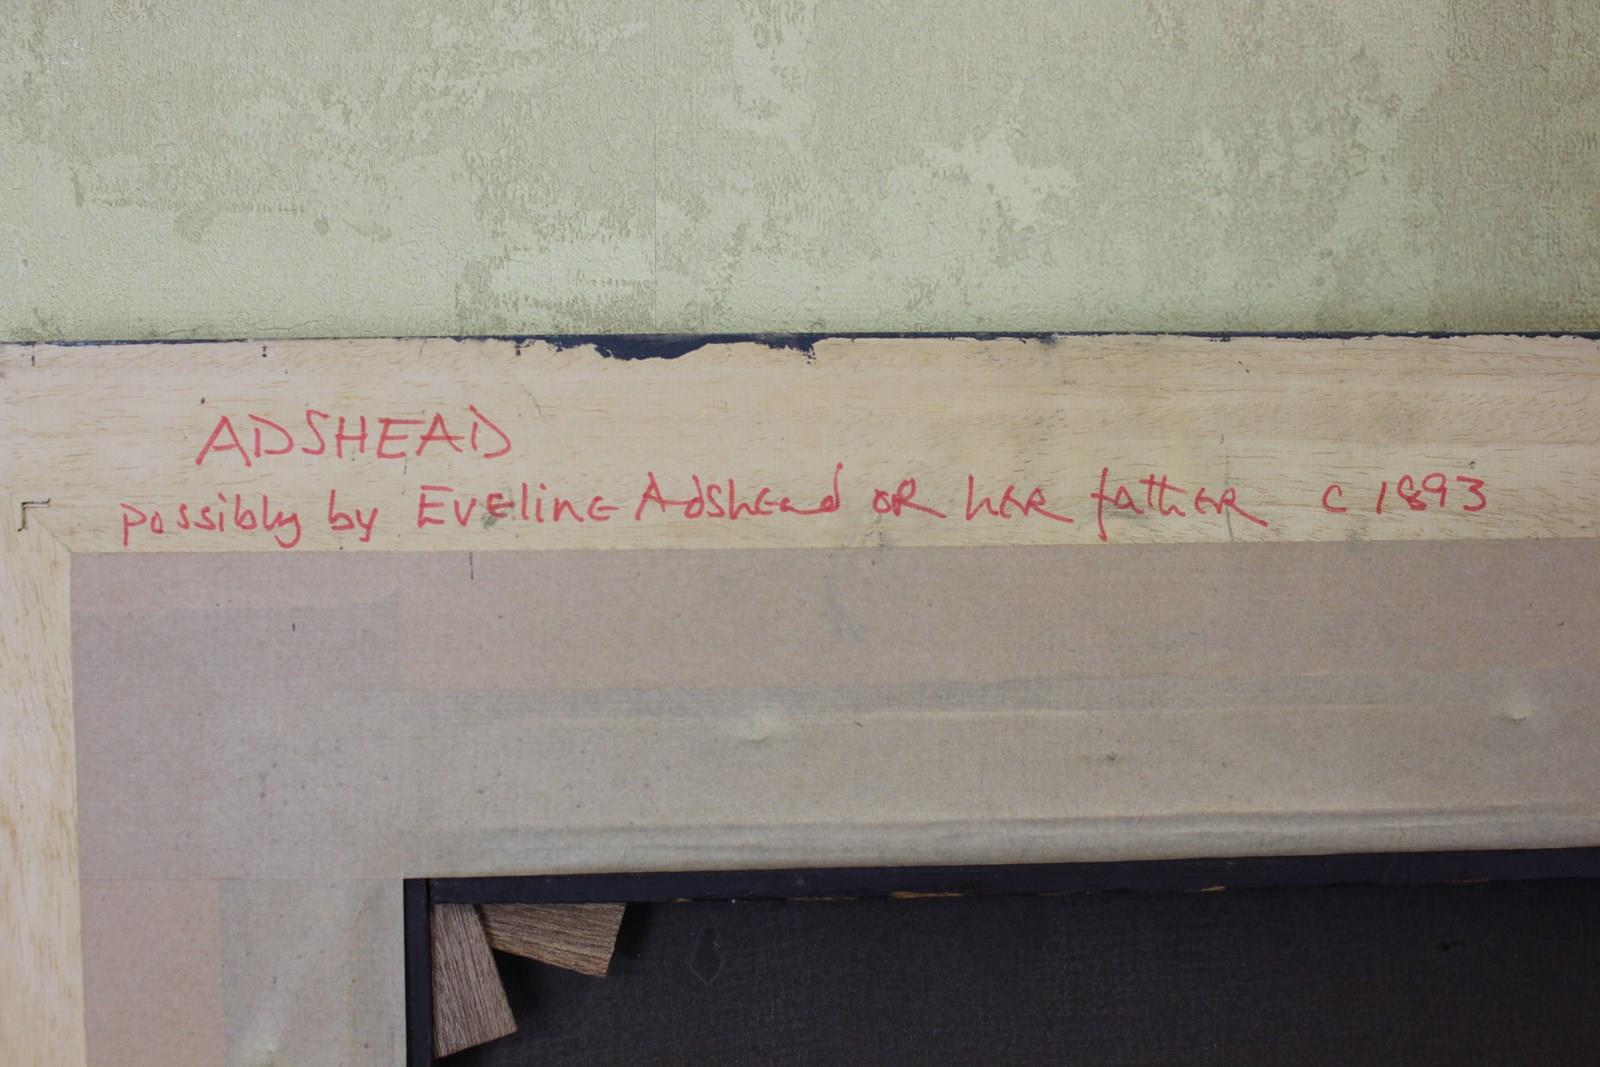 ADSHEAD
possibly by Eveline Adshead OR her father c 1893